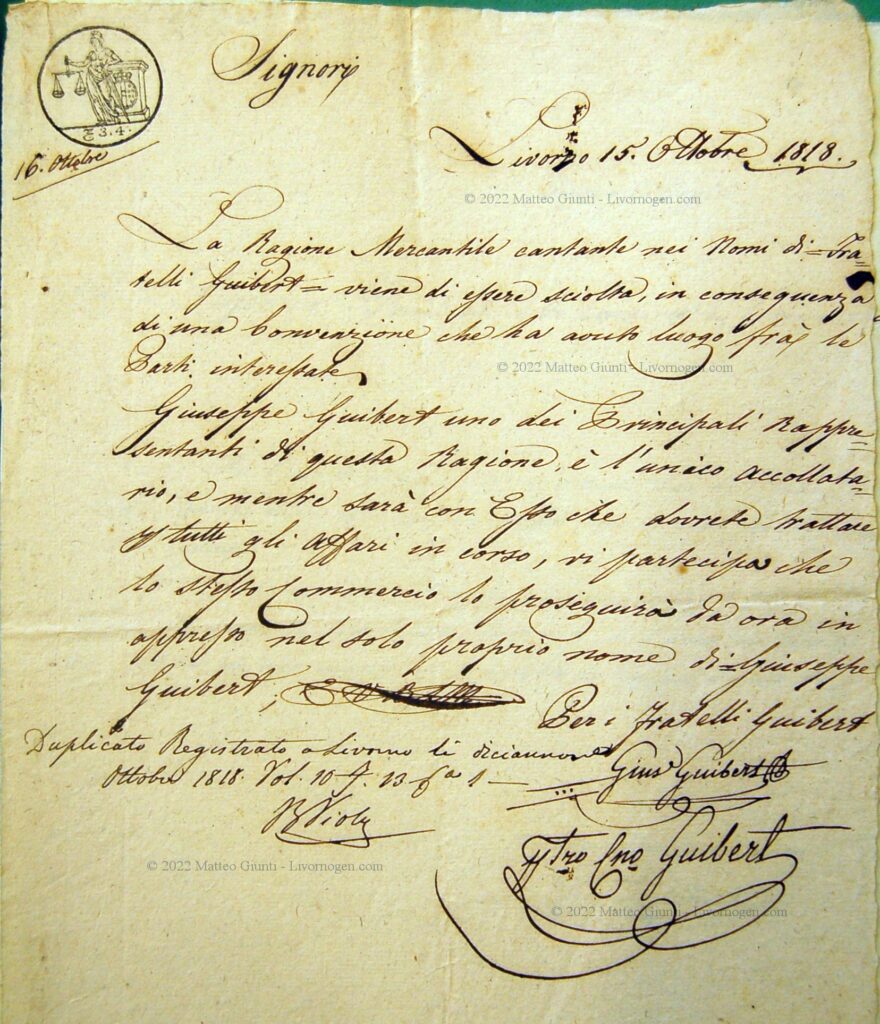 Signori
£ 3.4.
16. Ottobre
Livorno 15. Ottobre 1818.
© 2022 Matteo Giunti - Livornogen.com
La Ragione Mercantile cantante nei Nomi di = Fra=
telli Guibert = viene di essere sciolta, in conseguenza
di una Convenzione che ha avuto luogo frà le
Parti interessate
© 2022 Matteo Giunti - Livornogen.com
Giuseppe Guibert uno dei Principali Rappre=
sentanti di questa Ragione, è l'unico accollata=
rio, e mentre sarà con Esso che dovrete trattare
tutti gli Affari in corso, vi partecipa che
lo stesso Commercio lo proseguirà da ora in
appresso nel solo proprio nome di = Giuseppe
Guibert,
Per i Fratelli Guibert
Duplicato Registrato a Livorno li diciannove
Gius.e Guibert
Ottobre 1818. Vol. 10 f. 13 Ca 1
Guibert
© 2022 Matteo Giunti - Livornogen.com
© 2022 Matteo Giunti - Livornogen.com